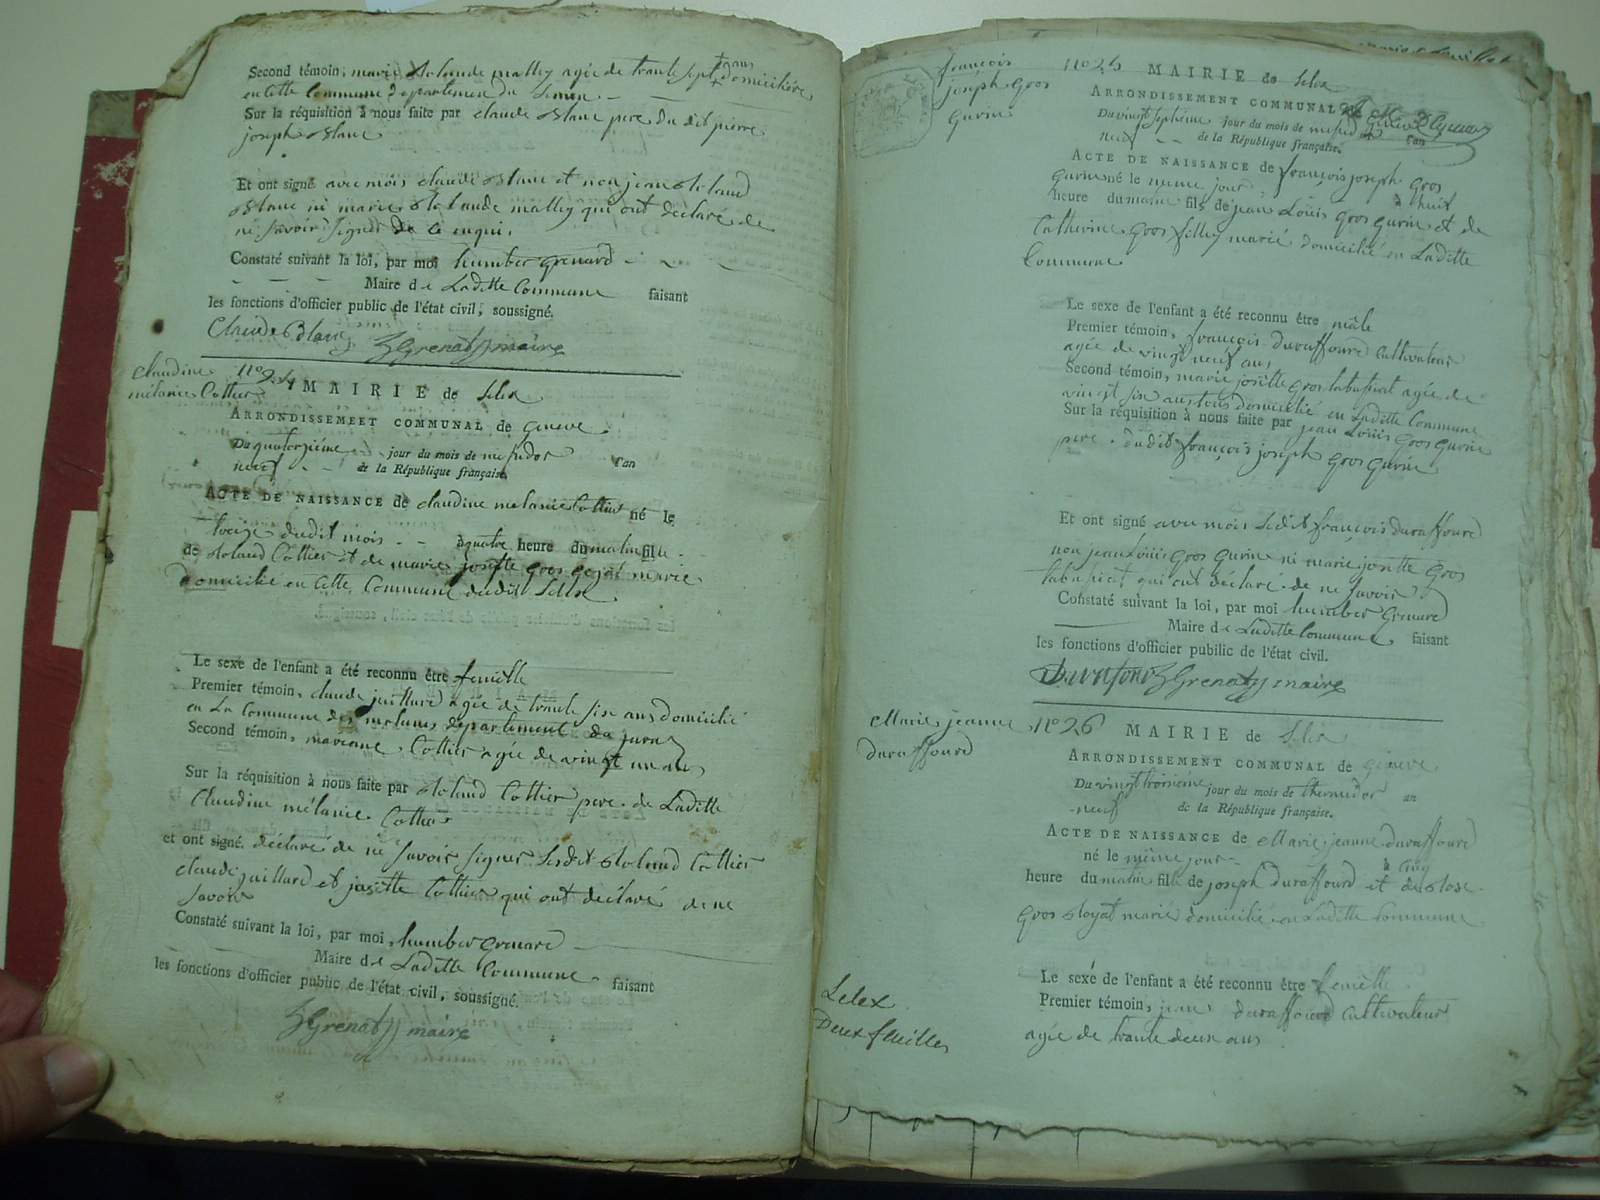 Second témoin, marie Rolande mathy agée de trante sept ans domiciliée
en cette Commune departement du Leman
Sur la réquisition à nous faite par claude Blanc pere du dit pierre
joseph Blanc
Et ont signé avec mois claude Blanc et non jean Roland
Blanc ni marie Rolande mathy qui ont déclaré de
ne savoir signer de ce enqui.
Constaté suivant la loi, par moi humber grenard
Maire de Laditte Commune faisant
les fonctions d'officier public de l'état civil, soussigné.
Claude Blanc hGrenard maire
claudine
mélanie Cottier
n° 24 MAIRIE de Lelex
ARRONDISSEMEET COMMUNAL de geneve
Du quatorzième jour du mois de messidor l'an
neuf de la République française.
ACTE DE NAISSANCE de claudine melanie Cottier né le
treize dudit mois à quatre heure du matin fille
de Roland Cottier et de marie josette gros marié
Domicilié en cette Commune dudit Lelex
Le sexe de l'enfant a été reconnu être femelle
Premier témoin, claude juillard agée de trante six ans domicilié
en La Commune des molunes departement du jura
Second témoin, marianne Cottier agée de vingt un ans
Sur la réquisition à nous faite par Roland Cottier pere de Laditte
Claudine mélanie Cottier
et ont signé déclaré de ne savoir signer Lesdit Roland Cottier
claude juillard et josette Cottier qui ont déclaré de ne
savoir
Constaté suivant la loi, par moi, humber grenard
Maire de Laditte Commune faisant
les fonctions d'officier public de l'état civil, soussigné.
hGrenard maire
françois
joseph Gros
Gurin
n° 25 MAIRIE de Lelex
ARRONDISSEMENT COMMUNAL de geneve
Du vingt septième jour du mois de messidor l'an
neuf de la République française.
ACTE DE NAISSANCE de françois joseph gros
gurin né le meme jour à huit
heure du matin fils de jean Louis gros gurin et de
Catherine gros marié domicilié en Laditte
Commune
Le sexe de l'enfant a été reconnu être mâle
Premier témoin, françois duraffourd Cultivateur
agée de vingt neuf ans
Second témoin, marie josette gros agée de
vingt six ans tous domicilié en Laditte Commune
Sur la réquisition à nous faite par jean Louis gros gurin
pere dudit françois joseph gros gurin
Et ont signé avec mois Ledit françois duraffourd
non jean Louis gros gurin ni marie josette gros
qui ont déclaré de ne savoir
Constaté suivant la loi, par moi humber grenard
Maire de Laditte Commune faisant
les fonctions d'officier publilic de l'état civil.
Durafour hGrenard maire
Marie jeanne
duraffourd
n° 26 MAIRIE de Lelex
ARRONDISSEMENT COMMUNAL de geneve
Du vingt troisième jour du mois de thermidor an
neuf de la République française.
ACTE DE NAISSANCE de Marie jeanne duraffourd
né le même jour à cinq
heure du matin fille de joseph duraffourd et de Rose
gros Royat marié domicilié en Laditte Commune
Le sexe de l'enfant a été reconnu être femelle
Premier témoin, jean duraffourd Cultivateur
agée de trante deux ans
Lelex
Deux feuilles